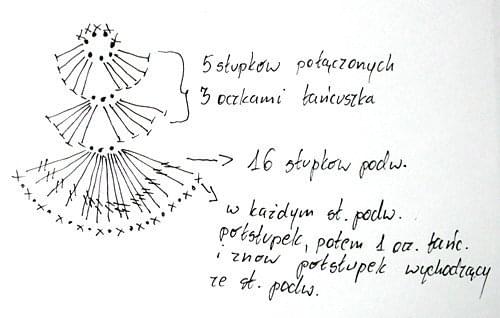 5 słupków połączonych
3 oczkami łańcuszka
16 słupków podw.
w każdym st. podw.
półsłupek, potem 1 ocz. łańc.
i znów półsłupek wychodzący
ze st. podw.